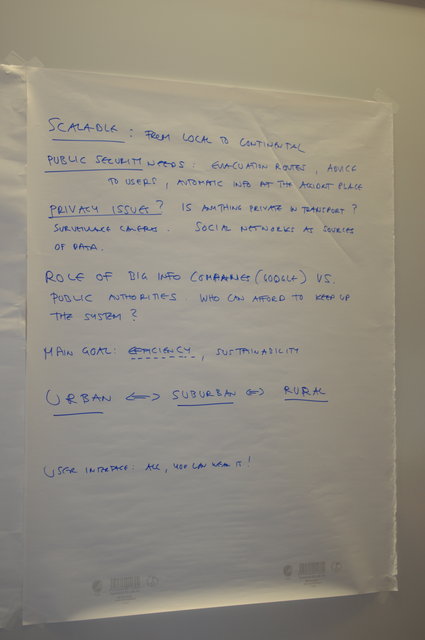 SCALABLE : FROM LOCAL TO CONTINENTAL
PUBLIC SECURITY NEEDS : EVACUATION ROUTES , ADVICE
TO USERS , AUTOMATIC INFO AT THE ACCIDENT PLACE
PRIVACY ISSUES ? IS ANYTHING PRIVATE IN TRANSPORT ?
SURVEILLANCE CAMERAS . SOCIAL NETWORKS AS SOURCES
OF DATA .
ROLE OF BIG INFO COMPANIES (GOOGLE) VS.
PUBLIC AUTHORITIES . WHO CAN AFFORD TO KEEP UP
THE SYSTEM ?
MAIN GOAL : EFFICIENCY , SUSTAINABILITY
URBAN <=> SUBURBAN <=> RURAL
USER INTERFACE : ALL , YOU CAN WEAR IT !